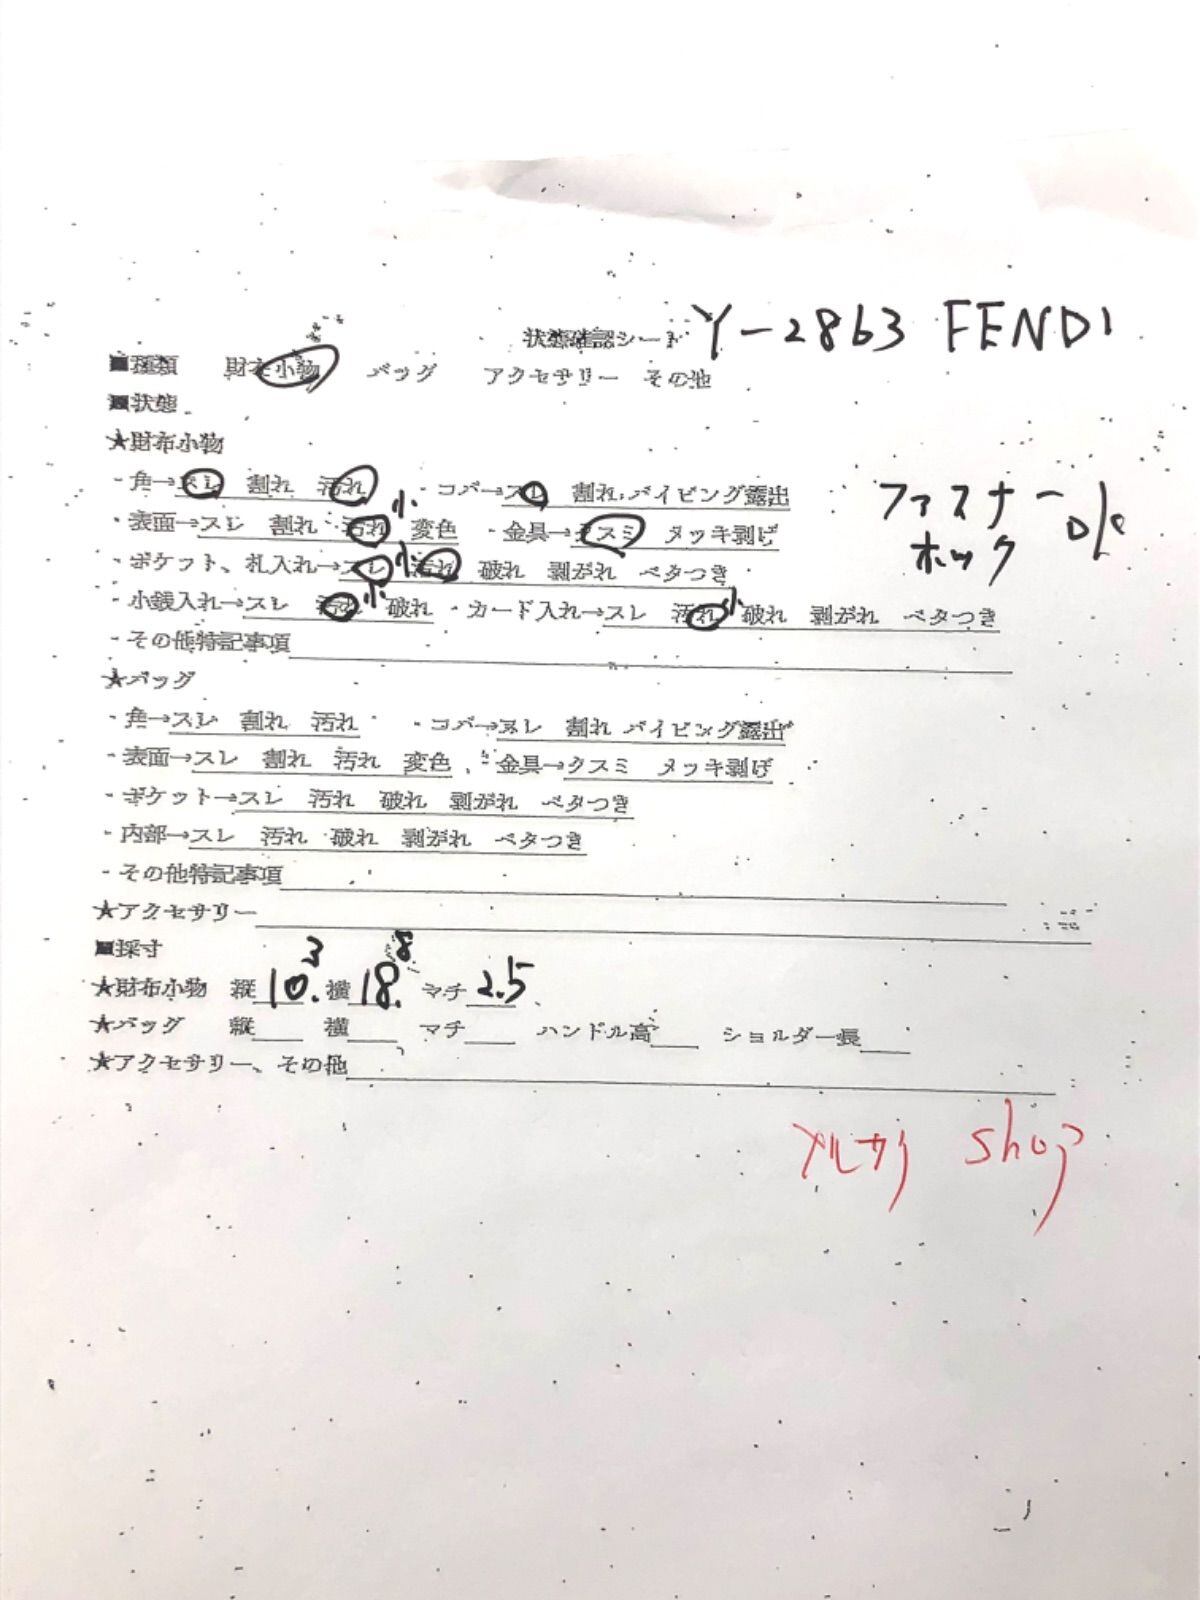 状態確認シート Y-2863 FENDI
■種類 財布小物 バッグ アクセサリー その他
■状態
★財布小物
・角→スレ 割れ 汚れ ・コバ→スレ 割れ パイピング露出
小
ファスナー
ホック
・表面→スレ 割れ 汚れ 変色 ・金具→クスミ メッキ剥げ
・ポケット、札入れ→スレ 小 汚れ 破れ 剥がれ ベタつき
・小銭入れ→スレ 汚れ 小 破れ ・カード入れ→スレ 汚れ 小 破れ 剥がれ ベタつき
・その他特記事項
★バッグ
・角→スレ 割れ 汚れ ・コバ→スレ 割れ パイピング露出
・表面→スレ 割れ 汚れ 変色 ・金具→クスミ メッキ剥げ
・ポケット→スレ 汚れ 破れ 剥がれ ベタつき
・内部→スレ 汚れ 破れ 剥がれ ベタつき
・その他特記事項
★アクセサリー
■採寸
★財布小物 縦 10.3 横 18.8 マチ 2.5
★バッグ 縦 横 マチ ハンドル高 ショルダー長
★アクセサリー、その他
メルカリ shop